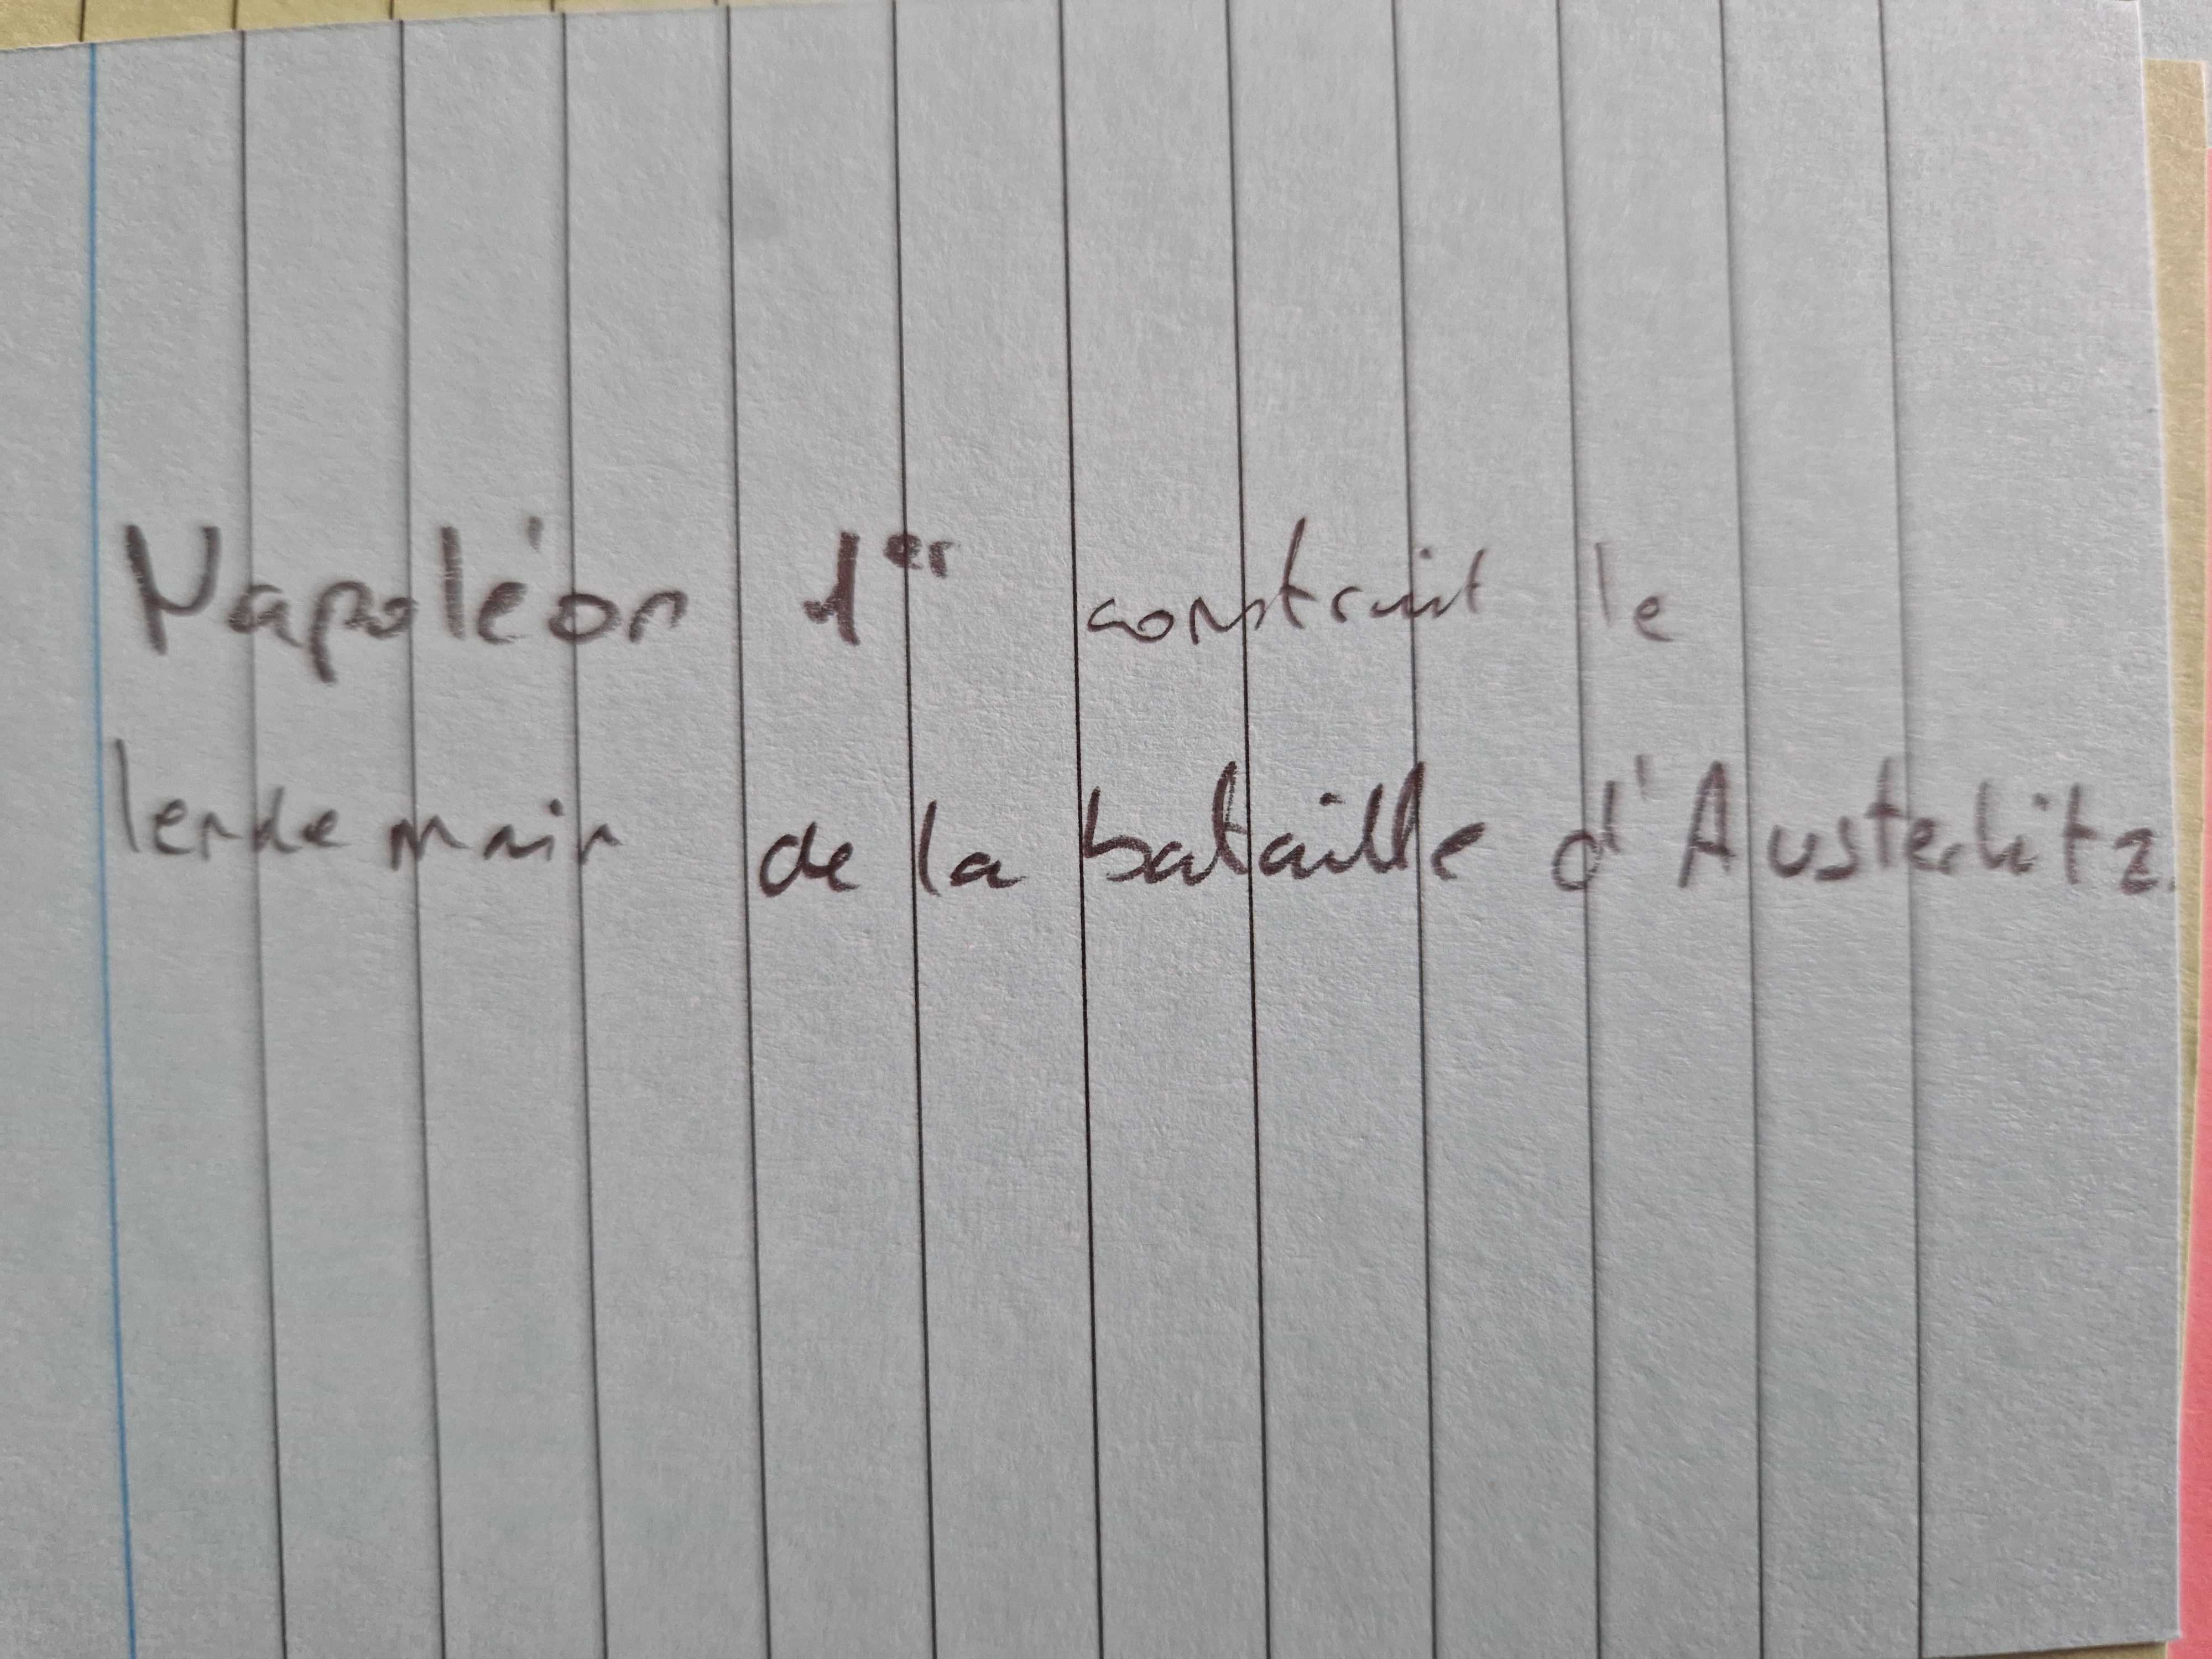 Napoléon 1er construit le
lendemain de la bataille d'Austerlitz.